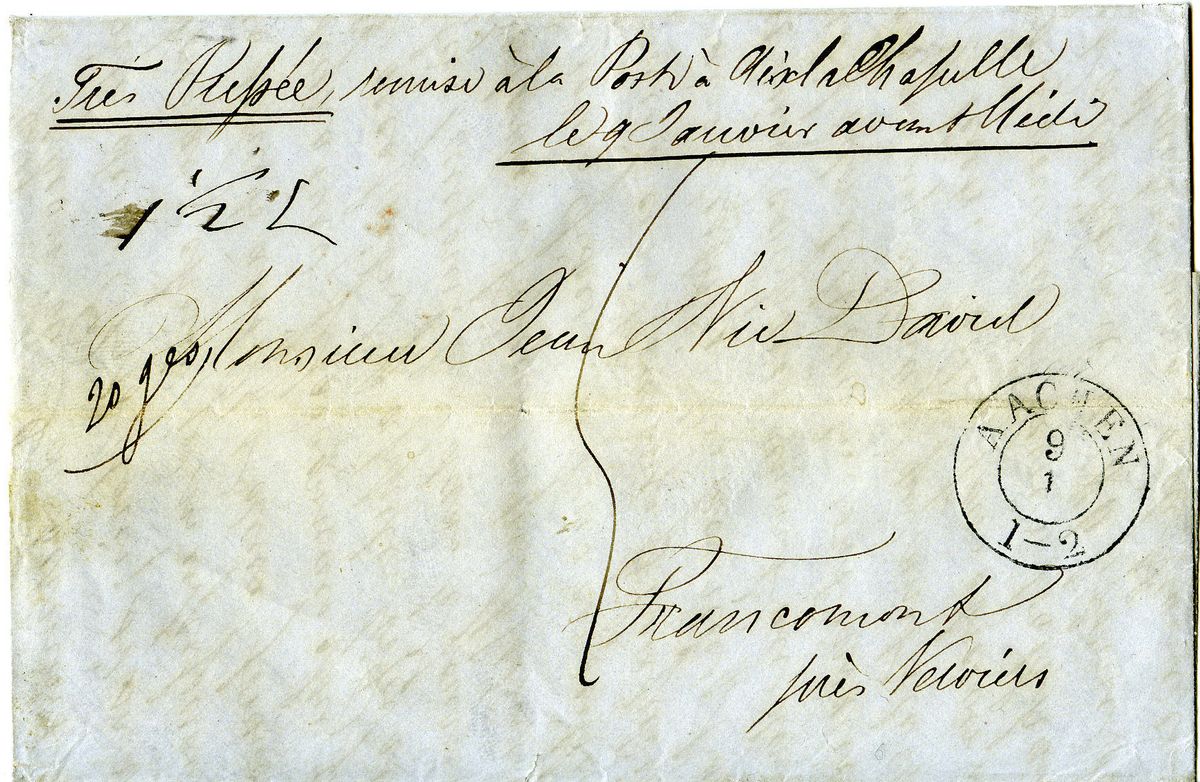 Très Pressée, remise à la Poste à Aix la Chapelle
le 9 Janvier avant Midi
1 1/2 L
Monsieur Jean Nic David
20 gr
AACHEN
9
1
1-2
Francomont
près Verviers